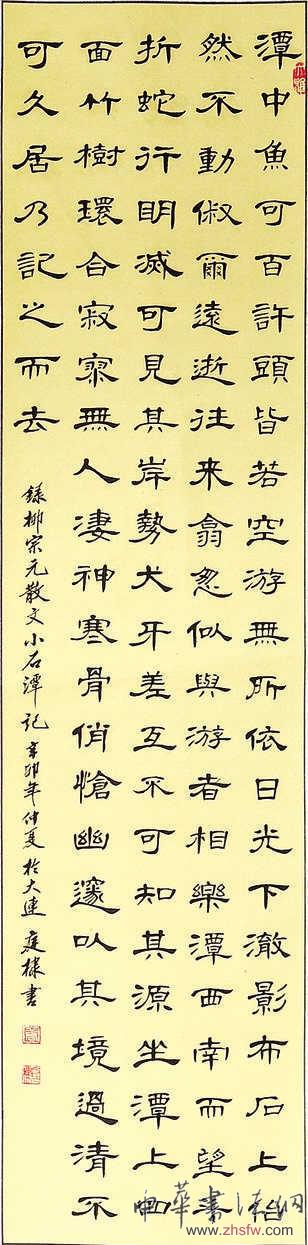 潭中魚可百許頭皆若空游無所依日光下澈影布石上佁
然不動俶爾遠逝往来翕忽似與游者相樂潭西南而望斗
折蛇行明滅可見其岸勢犬牙差互不可知其源坐潭上四
面竹樹環合寂寥無人凄神寒骨悄愴幽邃以其境過清不
可久居乃記之而去
錄柳宗元散文小石潭記辛卯年仲夏於大連庭棣書
中華書法網
www.zhsfw.com